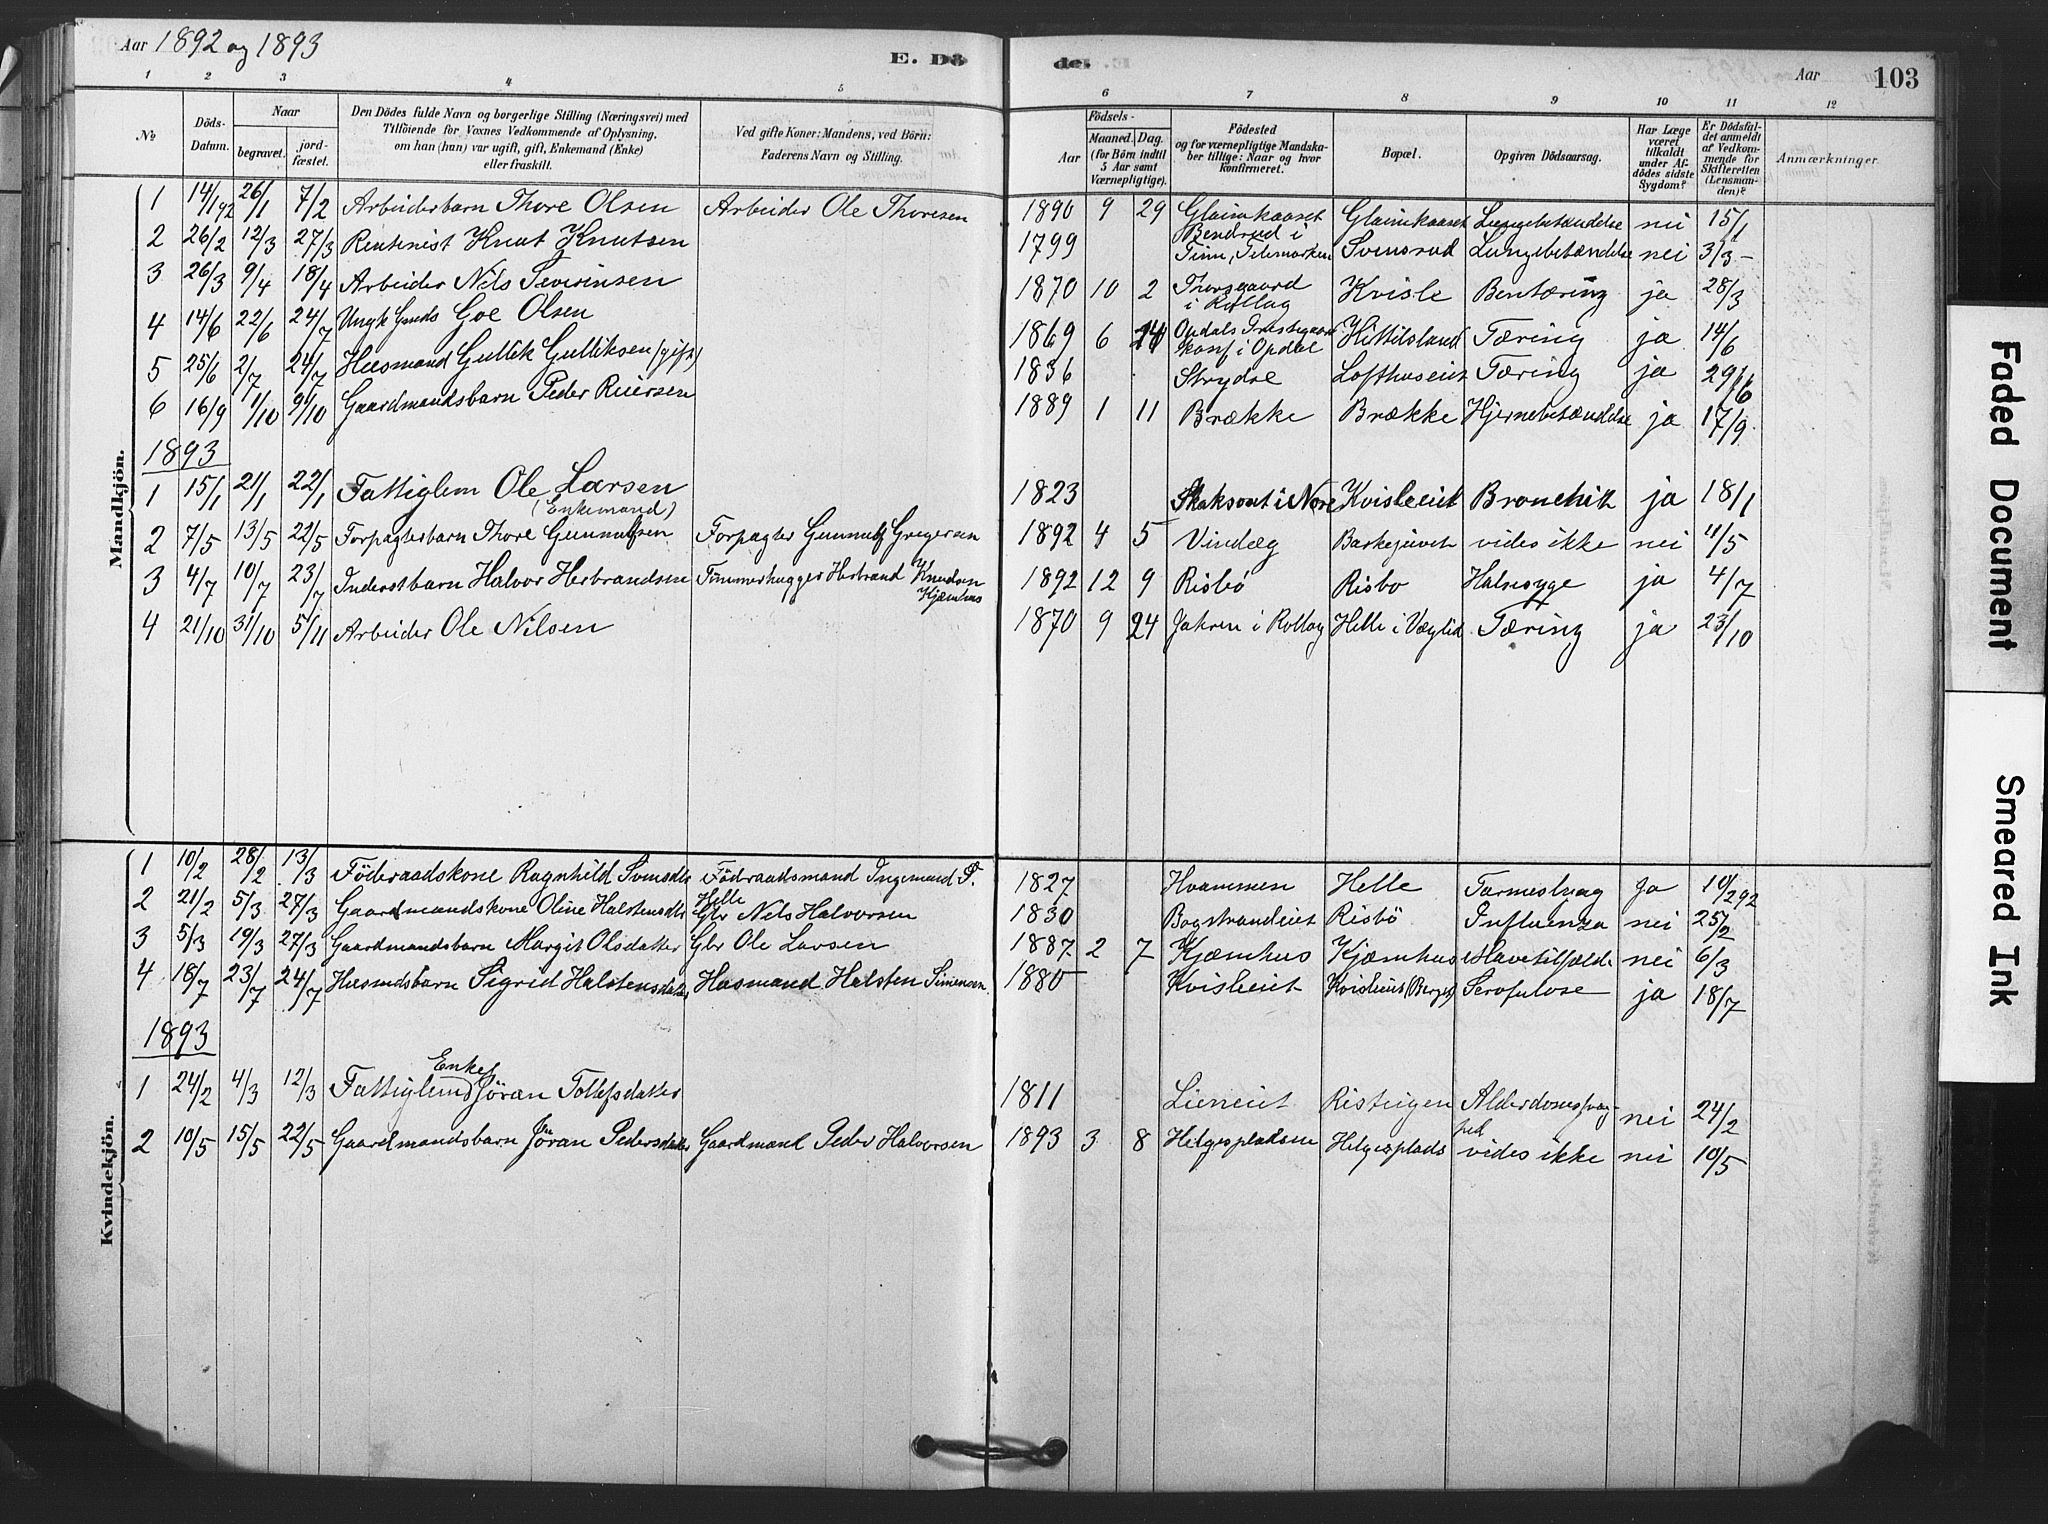 Aar 1892 og 1893
E. Dö
de.
Aar
103
1 2 3 4 5 6 7 8 9 10 11 12
No
Döds-Datum.
Naar
begravet.
jordfæstet.
Den Dödes fulde Navn og borgerlige Stilling (Næringsvei) med Tilföiende for Voxnes Vedkommende af Oplysning, om han (hun) var ugift, gift, Enkemand (Enke) eller fraskilt.
Ved gifte Koner: Mandens, ved Börn: Faderens Navn og Stilling.
Födsels-
Aar
Maaned. Dag.
(for Börn indtil 5 Aar samt Værnepligtige).
Födested og for værnepligtige Mandskaber tillige: Naar og hvor Konfirmeret.
Bopæl.
Opgiven Dödsaarsag.
Har Læge været tilkaldt under Afdödes sidste Sygdom?
Er Dödsfaldet anmeldt af Vedkommende for Skifteretten (Lensmanden)?
Anmærkninger.
Mandkjön.
1 14/1 92 26/1 7/2 Arbeiderbarn Thore Olsen Arbeider Ole Thoresen 1890 9 29 Lungebetændelse nei 15/1
2 26/2 12/3 27/3 Knut Knutsen 1799 Bendrud i Tinn, Telemarken Svensrud Lungebetændelse nei 3/3
3 26/3 9/4 18/4 Arbeider Nils Severinsen 1870 10 2 Thorsgaard i Rollag Kvisle Bentæring ja 28/3
4 14/6 22/6 24/7 Olsen 1869 6 Opdals konf i Opdal Kittilsland Tæring ja 14/6
5 25/6 2/7 24/7 Husmand Gullik Gulliksen (gift) 1836 Strydæ Lofthuseiet Tæring ja 29/6
6 16/9 1/10 9/10 Gaardmandsbarn Peder Reiersen 1889 1 11 Brække Brække Hjernebetændelse ja 17/9
1893
1 15/1 21/1 22/1 Fattiglem Ole Larsen (Enkemand) 1823 i Nore Kvisleeiet Bronchit ja 18/1
2 7/5 13/5 22/5 Forpagterbarn Thore Gunnulfsen Forpagter Gunnulf Gregersen 1892 4 5 Vindæg vides ikke nei 11/5
3 4/7 10/7 23/7 Inderstbarn Halvor Herbrandsen Tömmerhugger Herbrand Knudsen Kjæmhus 1892 12 9 Risbö Risbo Halsesyge ja 4/7
4 21/10 31/10 5/11 Arbeider Ole Nilsen 1870 9 24 Jahren i Rollag Helle i Væglid Tæring ja 23/10
Kvindekjön.
1 10/2 28/2 13/3 Föderaadskone Ragnhild Svensdtr Föderaadsmand Ingemund P. Helle 1827 Hvammen Helle Tarmeslyng Ja 10/2 92
2 21/2 5/3 27/3 Gaardmandskone Oline Halstensdtr Gbr Nils Halvorsen 1830 Bogstrandeiet Risbö Influenza nei 25/2
3 5/3 19/3 27/3 Gaardmandsbarn Margit Olsdatter Gbr Ole Larsen 1887 2 7 Kjæmhus Kjæmhus Mavetilfælde nei 6/3
4 18/7 23/7 24/7 Husmdsbarn Sigrid Halstensdatter Husmand Halsten Simensen. 1880 Kvisleeiet Kvisleeiet (Berget) Scrofulose ja 18/7
1893
1 24/2 4/3 12/3 Fattiglem Enke Jöran Tollefsdatter 1811 Lieneiet Risteigen Alderdomssvaghed nei 24/2
2 10/5 15/5 22/5 Gaardmandsbarn Jöran Pedersdatter Gaardmand Peder Halvorsen 1893 3 8 Helgespladsen Helgesplads vides ikke nei 10/5
Faded Document
Smeared Ink